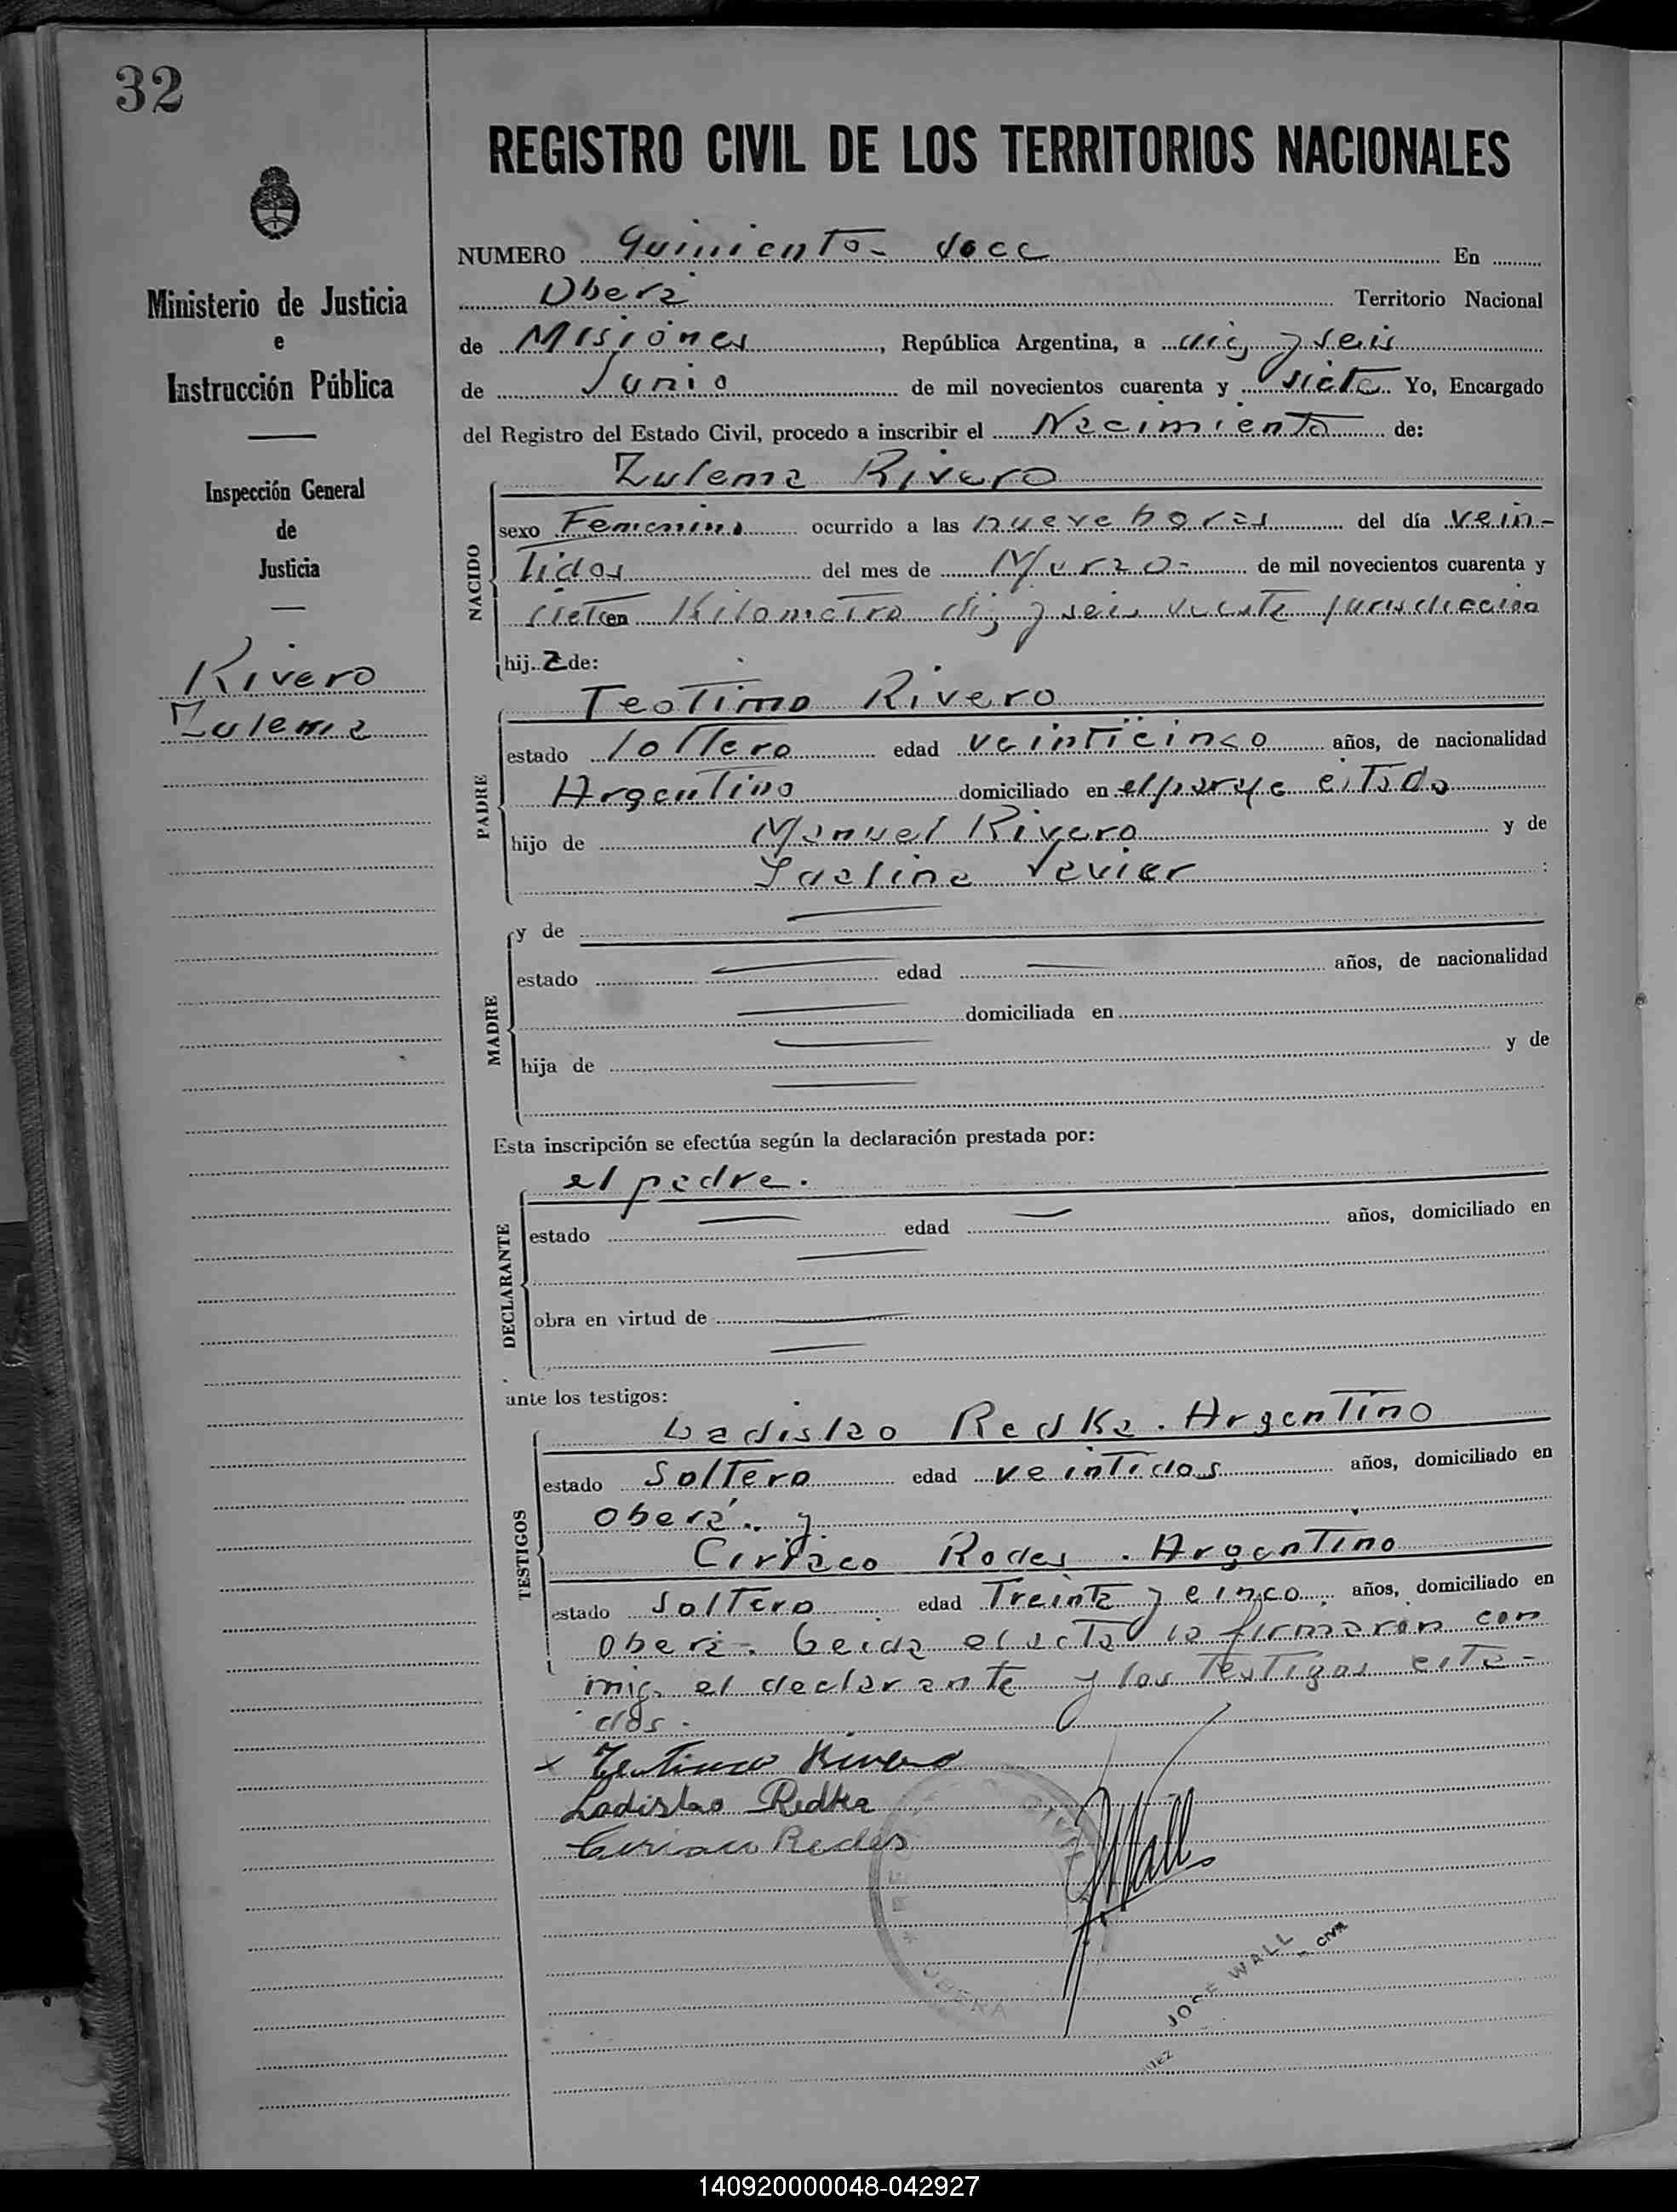 32
REGISTRO CIVIL DE LOS TERRITORIOS NACIONALES
Ministerio de Justicia
e
Instrucción Pública
Inspección General
de
Justicia
Rivero
Zulema
NUMERO Quiniento- doce En
Oberá Territorio Nacional
de Misiones, República Argentina, a diez y seis
de Junio de mil novecientos cuarenta y siete Yo, Encargado
del Registro del Estado Civil, procedo a inscribir el Nacimiento de:
Zulema Rivero
NACIDO
sexo Femenino ocurrido a las nueve horas del día vein-
tidos del mes de Marzo- de mil novecientos cuarenta y
siete en Kilometro diez y seis jurisdiccion
hija de:
Teotimo Rivero
PADRE
estado soltero edad veinticinco años, de nacionalidad
Argentino domiciliado en el paraje citado
hijo de Manuel Rivero y de
:
MADRE
y de
estado edad años, de nacionalidad
domiciliada en
hija de y de
Esta inscripción se efectúa según la declaración prestada por:
el padre.
DECLARANTE
estado edad años, domiciliado en
obra en virtud de
ante los testigos:
Ladislao Redka. Argentino
TESTIGOS
estado Soltero edad veintidos años, domiciliado en
Oberá. y
Ciriaco Rodes. Argentino
estado Soltero edad Treinta y cinco años, domiciliado en
Oberá-. Leida el acta la firmaron con
migo el declarante y los testigos cita-
dos.
x Teotimo Rivero
Ladislao Redka
Ciriaco Rodes
JWall
OBERA
JOSÉ WALL
JUEZ CIVIL
140920000048-042927